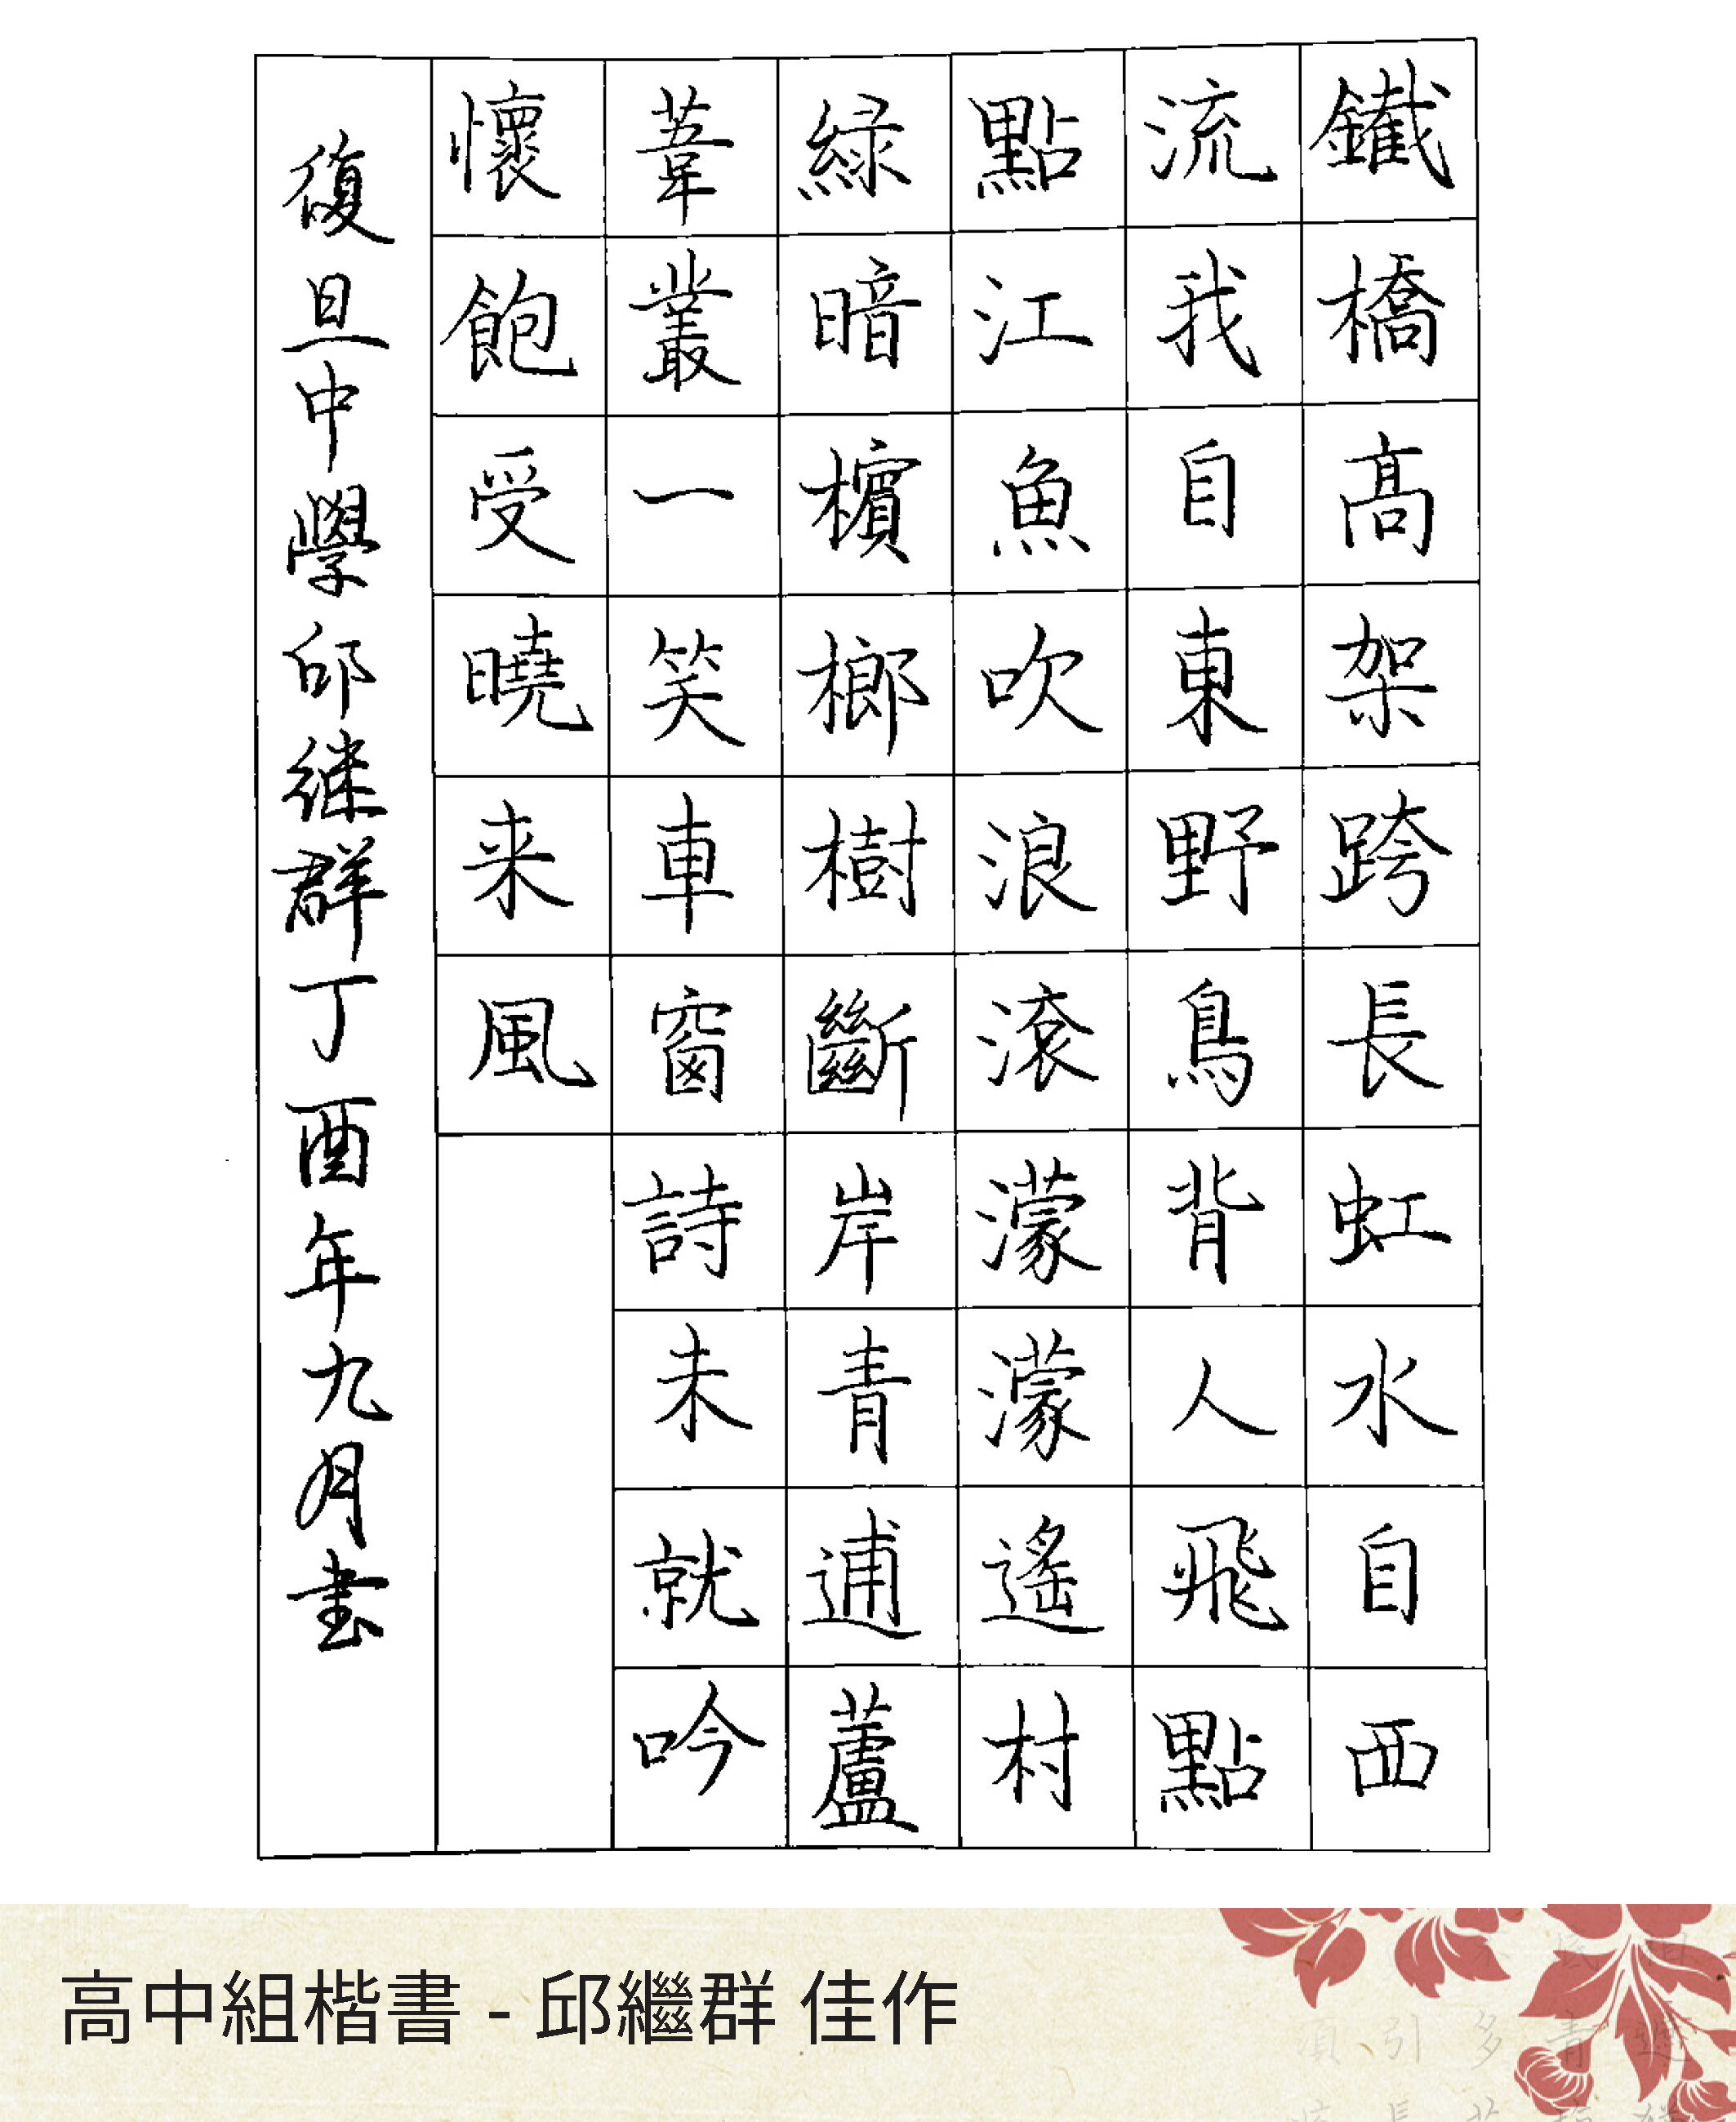 鐵橋高架跨長虹水自西
流我自東野鳥背人飛點
點江魚吹浪滾濛濛遙村
綠暗檳榔樹斷岸青逋蘆
葦叢一笑車窗詩未就吟
懷飽受曉来風
復旦中學邱继群丁酉年九月书
高中組楷書 - 邱繼群 佳作